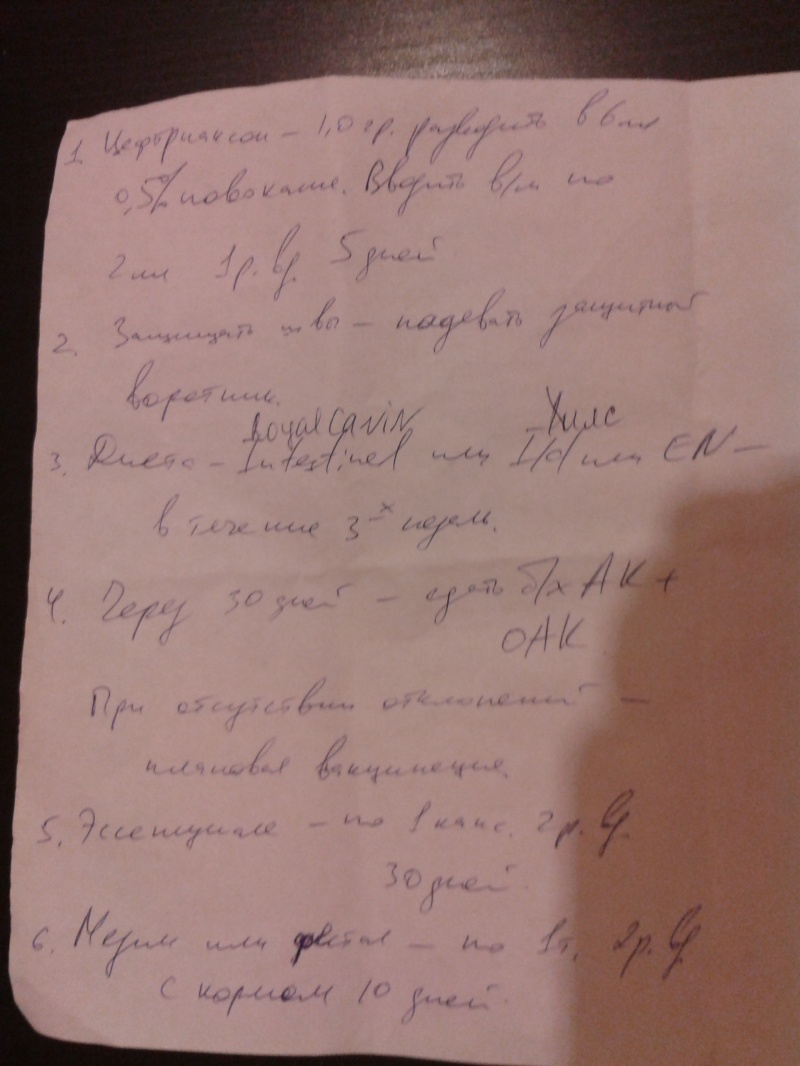 1. Цефтриаксон – 1,0 гр. разводить в 6 мл
0,5% новокаине. Вводить в/м по
2 мл 1 р. в д. 5 дней
2. Защищать швы – надевать защитный
воротник.
Royal Canin Хилс
3. Диета – Intestinal или I/d или EN –
в течение 3-х недель.
4. Через 30 дней – сдать б/х АК +
ОАК
При отсутствии отклонений –
плановая вакцинация.
5. Эссенциале – по 1 капс. 2 р. в д.
30 дней
6. Мезим или фестал – по 1 т. 2 р. в д.
с кормом 10 дней.